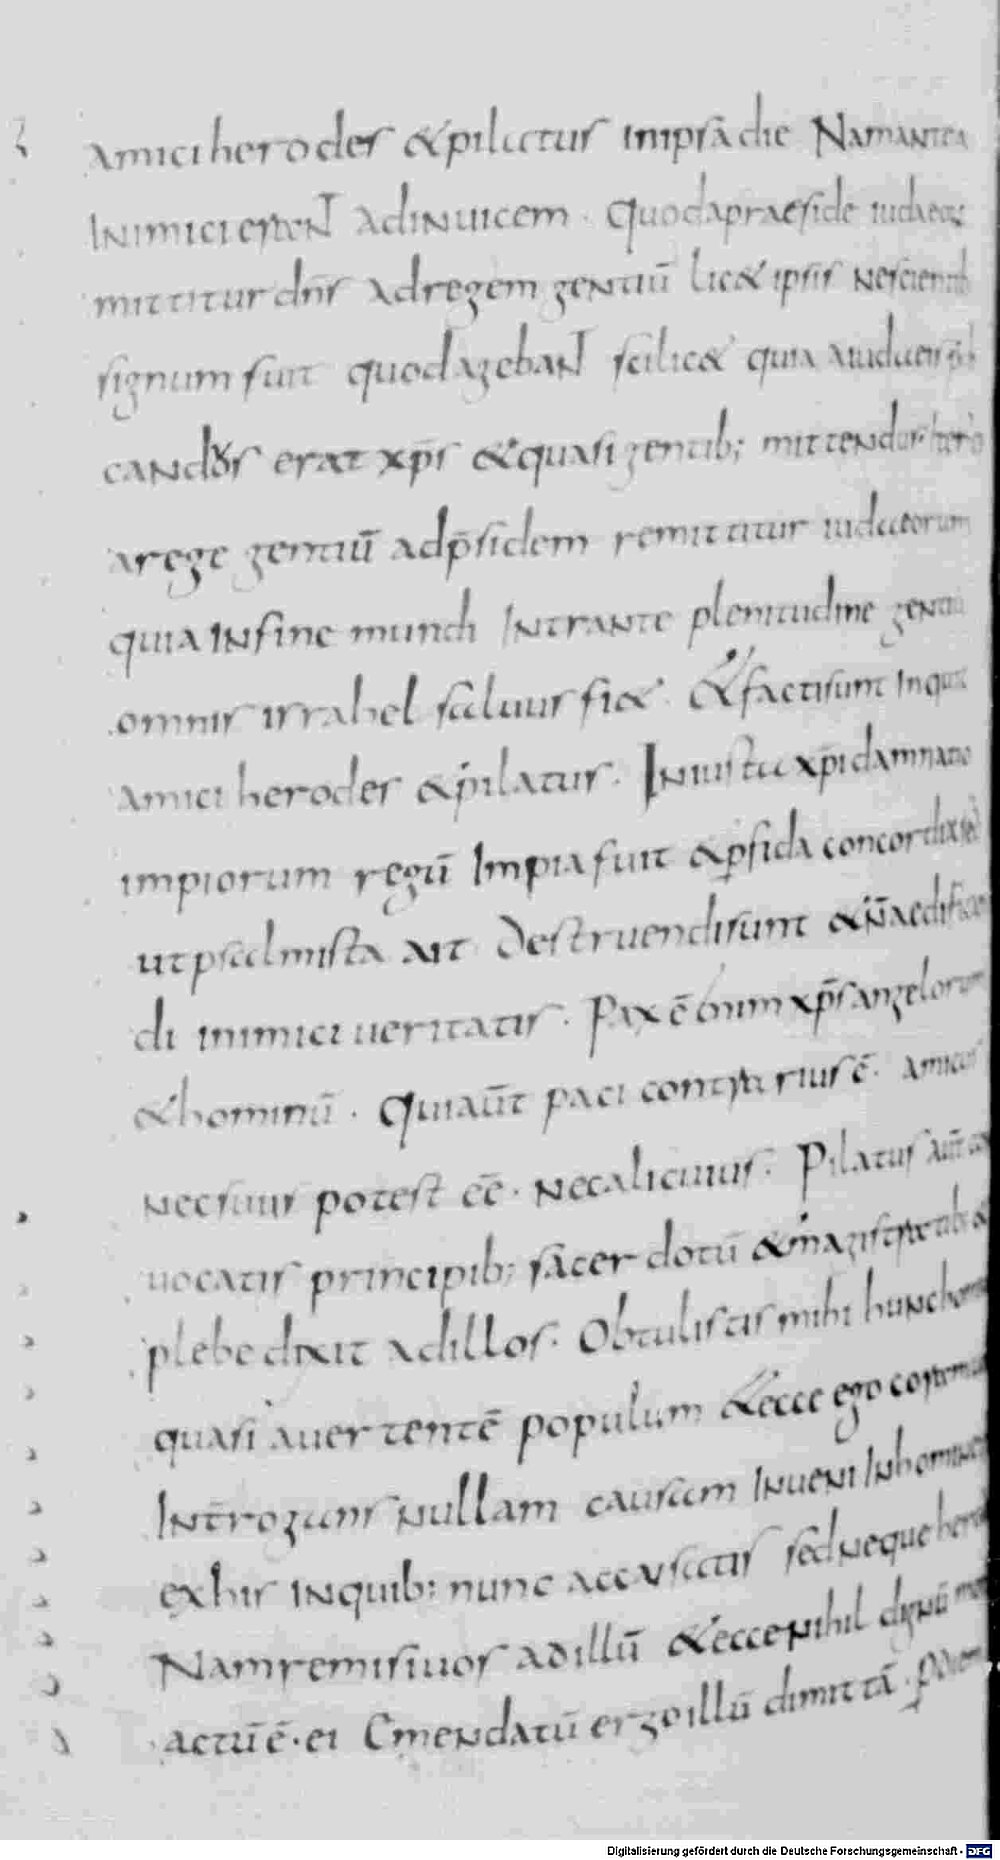 amici herodes & pilatus in ipsa die Nam antea
Inimici erant adinuicem · Quod a praeside iudaeorum
mittitur dn̄s ad regem gentiū lic& ipsis nescientib
signum fuit quod agebant scilic& quia a iudaeis
candus erat xp̄s & quasi gentib; mittendus
a rege gentiū ad p̄sidem remittitur iudaeorum
quia in fine mundi Intrante plenitudine gentiū
omnis israhel saluus fi& . & facti sunt inquit
amici herodes & pilatus . Iniusta xp̄i damnatio
impiorum regū Impia fuit & pfida concordia sed
ut psalmista ait Destruendi sunt & n̄ aedifican
di inimici ueritatis . Pax ē enim xp̄s angelorum
& hominū . Qui aūt paci contrarius ē . amicus
nec suus potest eē . nec alicuius . Pilatus aūt con
uocatis principib; sacerdotū & magistratib; &
plebe dixit ad illos . Obtulistis mihi hunc hominē
quasi auertentē populum & ecce ego coram
Int̄rogans nullam causam Inueni In homine
ex his in quib; nunc accusatis sed neque herodes
Nam remisi uos ad illū & ecce nihil dignū
actū ē . ei Emendatū ergo illū dimittā .
Digitalisierung gefördert durch die Deutsche Forschungsgemeinschaft - DFG